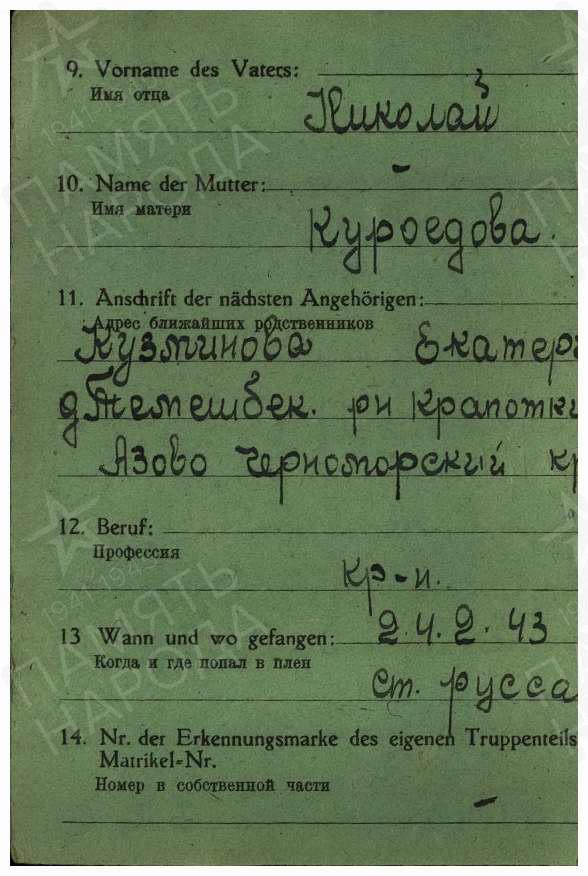 9. Vorname des Vaters:
Имя отца
Николай
10. Name der Mutter: -
Имя матери
Куроедова.
11. Anschrift der nächsten Angehörigen:
Адрес ближайших родственников
Кузминова Екатер
д Темешбек. рн Крапотки
Азово Черноморский кр
12. Beruf:
Профессия
кр-н.
13 Wann und wo gefangen: 24.2.43
Когда и где попал в плен
ст. русса
14. Nr. der Erkennungsmarke des eigenen Truppenteils
Matrikel-Nr.
Номер в собственной части
-
ПАМЯТЬ
НАРОДА
1941-1945
ПАМЯТЬ
НАРОДА
1941-1945